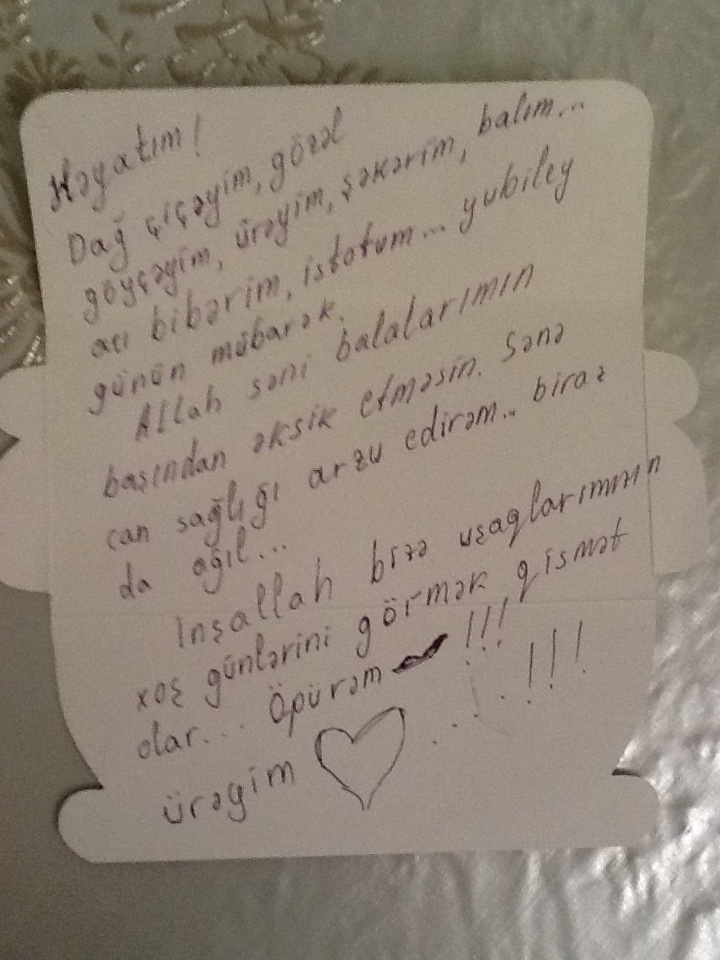 Həyatım!
Dağ çiçəyim, gözəl
göyçəyim, ürəyim, şəkərim, balım...
acı bibərim, istotum... yubiley
günün mübarək.
Allah səni balalarımın
başından əksik etməsin. Sənə
can sağlığı arzu edirəm... biraz
da ağıl...
İnşallah bizə uşaqlarımızın
xoş günlərini görmək qismət
olar... Öpürəm !!!
ürəyim ....!!!